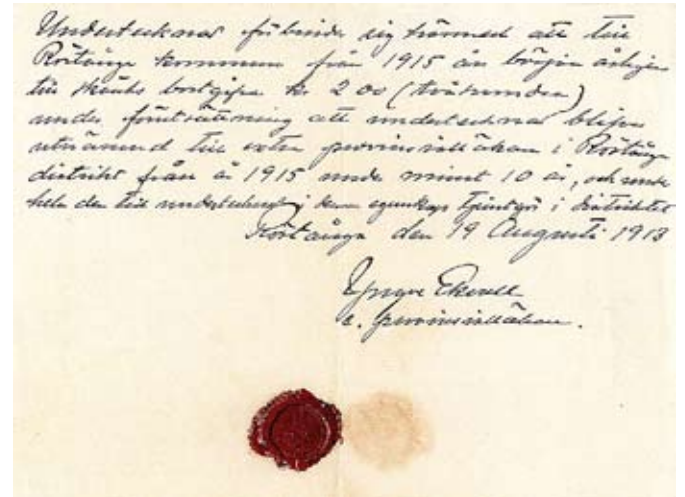 Undertecknad förbinder sig härmed att till
Röstånga kommun från 1915 års början årligen
till skänks bortgifva kr 200 (tvåhundra)
under förutsättning att undertecknad blifver
utnämnd till extra provinsialläkare i Röstånga
distrikt från år 1915 under minst 10 år, och under
hela den tid undertecknad i denna egenskap tjänstgör i distriktet
Röstånga den 19 Augusti 1913
Yngve Ekwall
e. provinsialläkare.